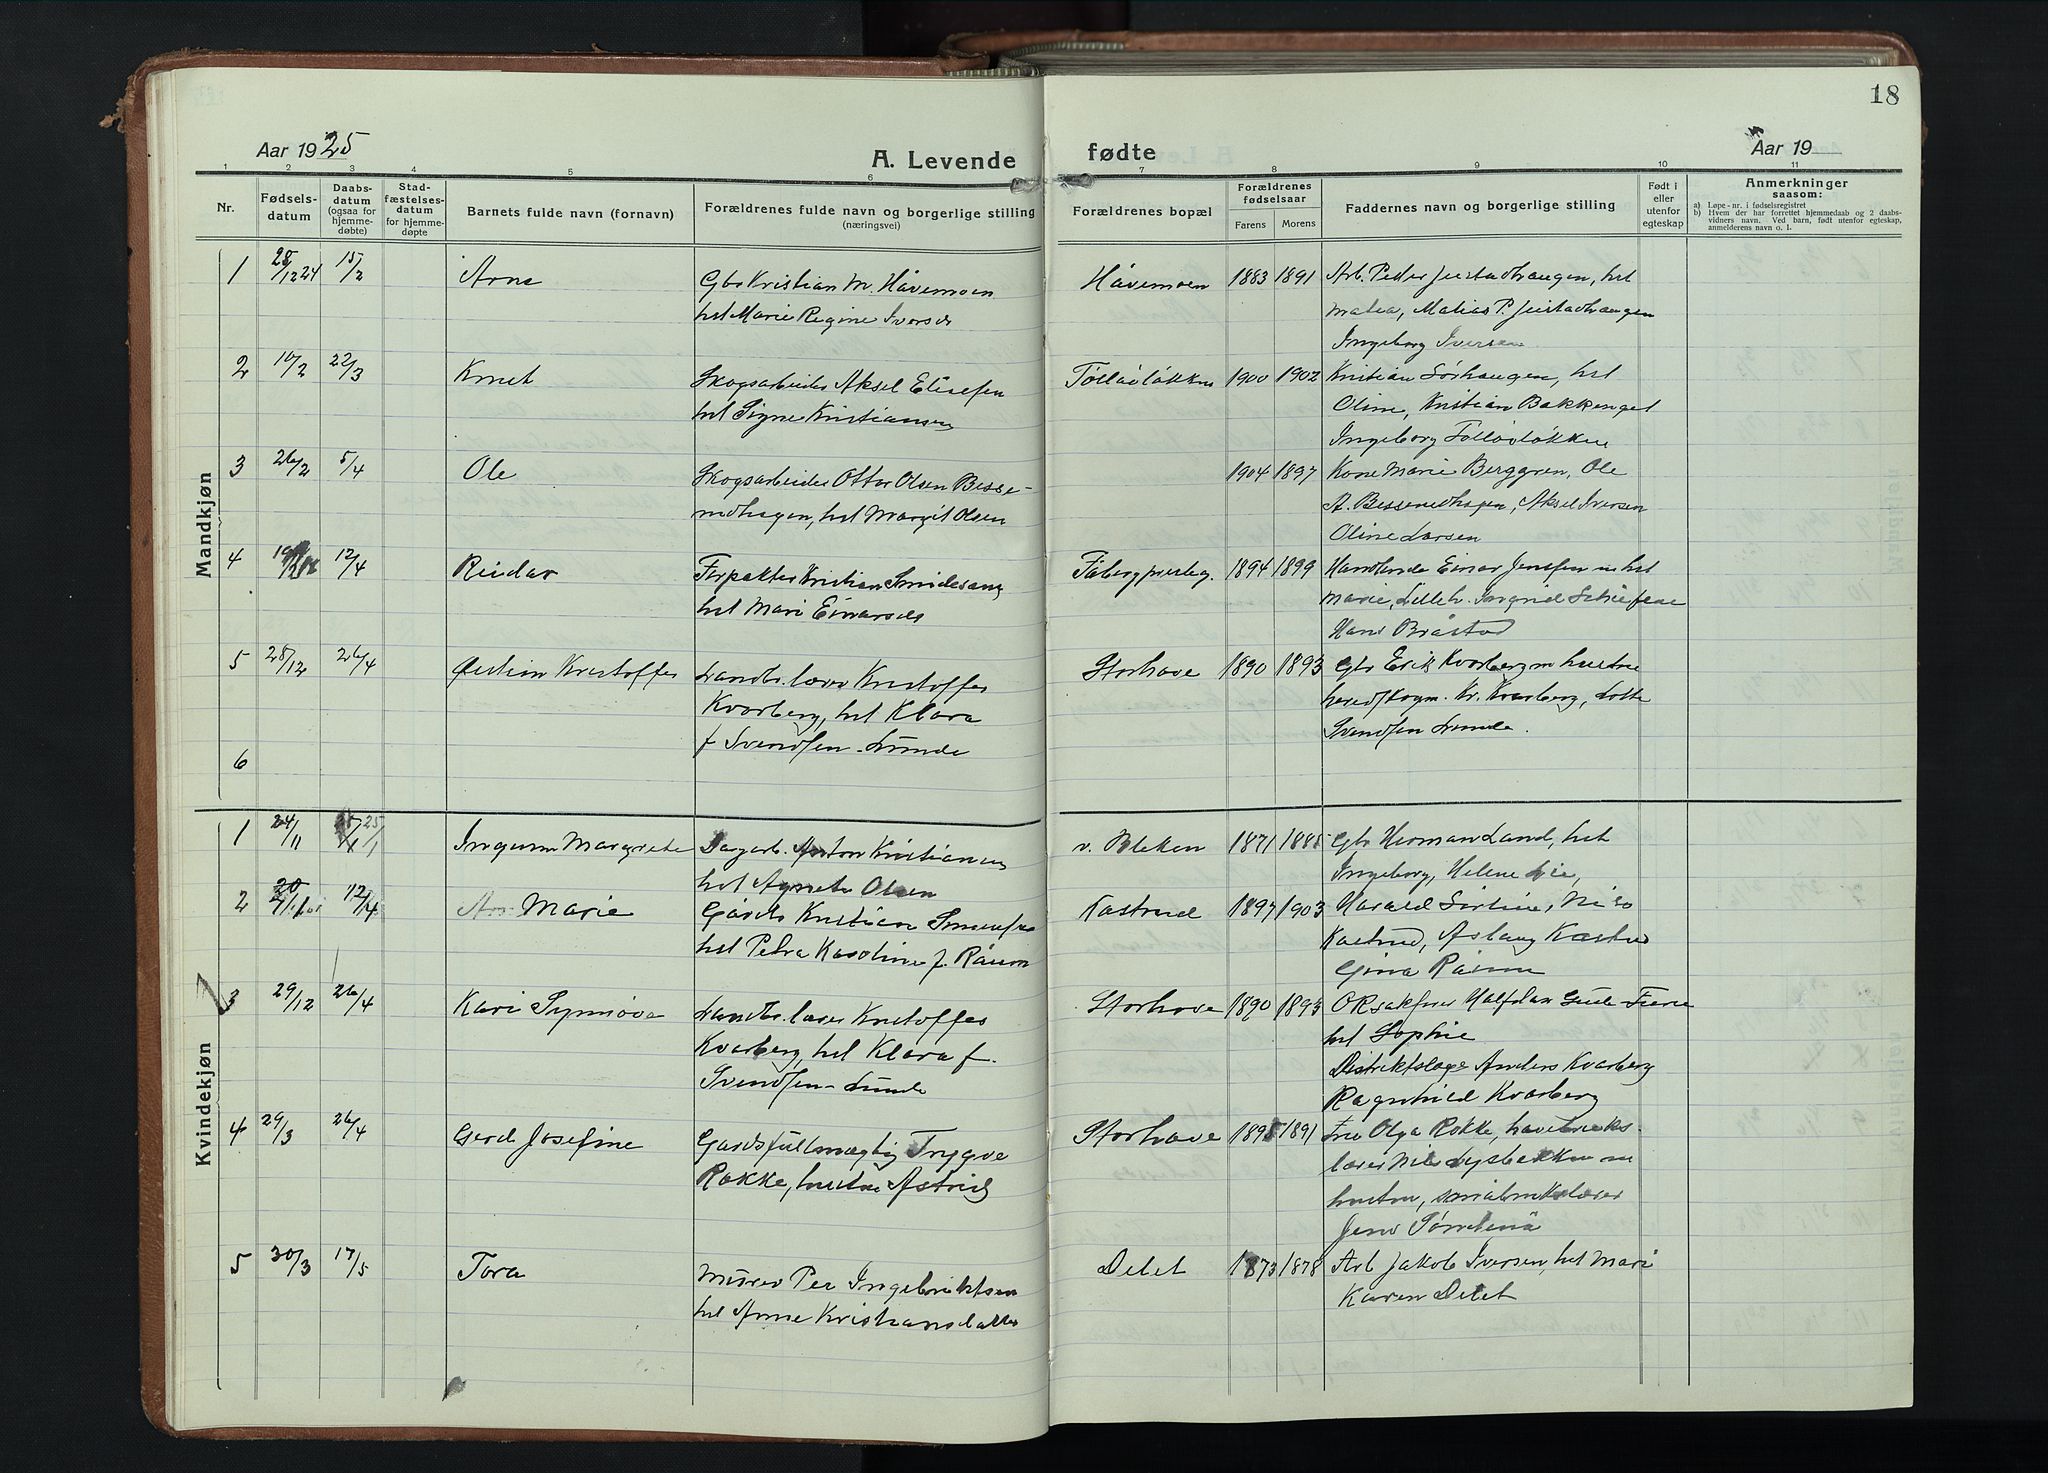 18
Aar 1925
A. Levende fødte
Aar 19
1 2 3 4 5 6 7 8 9 10 11
Nr.
Fødsels-
datum
Daabs-
datum
(ogsaa for
hjemme-
døbte)
Stad-
fæstelses-
datum
for hjemme-
døpte
Barnets fulde navn (fornavn)
Forældrenes fulde navn og borgerlige stilling
(næringsvei)
Forældrenes bopæl
Forældrenes
fødselsaar
Farens Morens
Faddernes navn og borgerlige stilling
Født i
eller
utenfor
egteskap
Anmerkninger
saasom:
a) Løpe-nr. i fødselsregistret
b) Hvem der har forrettet hjemmedaab og 2 daabs-
vidners navn. Ved barn, født utenfor egteskap,
anmelderens navn o. l.
Mandkjøn
1 28/12 24 15/2 Arne Gbr Kristian M. Håvemoen Håvemoen 1883 1891 Arb. Peder Jeistadhaugen, hst
hst Marie Regine Iversdr Matea, Matias P. Jeistadhaugen
Ingeborg Iversen
2 10/2 22/3 Knut Skogsarbeider Aksel Ellefsen 1900 1902 Kristian Sørhaugen, hst
hst Signe Kristiansen Oline, Kristian Bakkenget
Ingeborg
3 26/2 5/4 Ole Skogsarbeider Ottar Olsen Besse- 1904 1897 Kone Marie Berggren, Ole
medhagen, hst Margit Olsen A. Bessemedhagen, Aksel Iversen
Oline Larsen
4 12/4 Reidar Forpakter Kristian Smidesang 1894 1899 Handlende Einar Jenssen m hst
hst Mari Einarsdr Marie, Lilleh. Ingrid
Hans Bråstad
5 28/12 26/4 Kristoffer Landbr.lærer Kristoffer Storhove 1890 1893 Gbr Erik Kvarberg m hustru
Kvarberg, hst Klara Kr. Kvarberg, Lotte
f Svendsen-Lunde Svendsen Lunde.
6
Kvindekjøn
1 24/11 25/1 Ingunn Margrete Dagarb. Anton Kristiansen v. Bleken 1871 1885 Gbr Herman Land, hst
hst Agnete Olsen Ingeborg, Helene Lie,
2 12/4 Marie Gårdbr Kristian Kastrud 1897 1903 Harald
hst Petra Karoline f. Råum Kastrud, Aslaug Kastrud
Gina Råum
3 29/12 26/4 Kari Synnøve Landbr.lærer Kristoffer Storhove 1890 1893 ORsakfører Halfdan
Kvarberg, hst Klara f. hst Sophie
Svendsen-Lunde Distriktslæge Anders Kvarberg
Ragnhild Kvarberg
4 29/3 26/4 Gerd Josefine Gårdsfullmægtig Trygve Storhove 1895 1891 Fru Olga Rokke, havebruks-
Rokke, hustru Astrid lærer Nils Lysbakken m
hustru, småbrukslærer
Jens
5 30/3 17/5 Tora Murer Per Ingebriktsen Delet 1873 1878 Arb Jakob Iversen, hst Mari
hst Anne Kristiansdatter Karen Delet